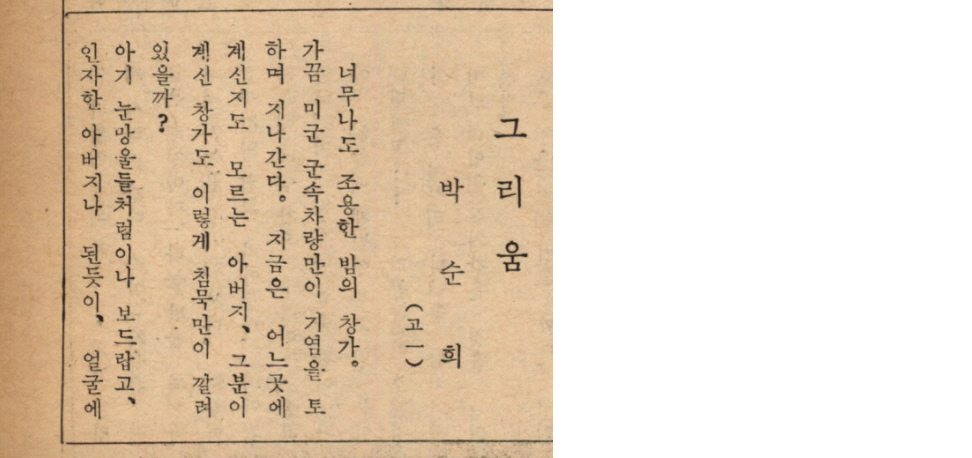 그리움
박순희
(고一)
너무나도 조용한 밤의 창가。
가끔 미군 군속차량만이 기염을 토
하며 지나간다。 지금은 어느곳에
계신지도 모르는 아버지、 그분이
계신 창가도 이렇게 침묵만이 깔려
있을까?
아기 눈망울들처럼이나 보드랍고、
인자한 아버지나 된듯이、 얼굴에